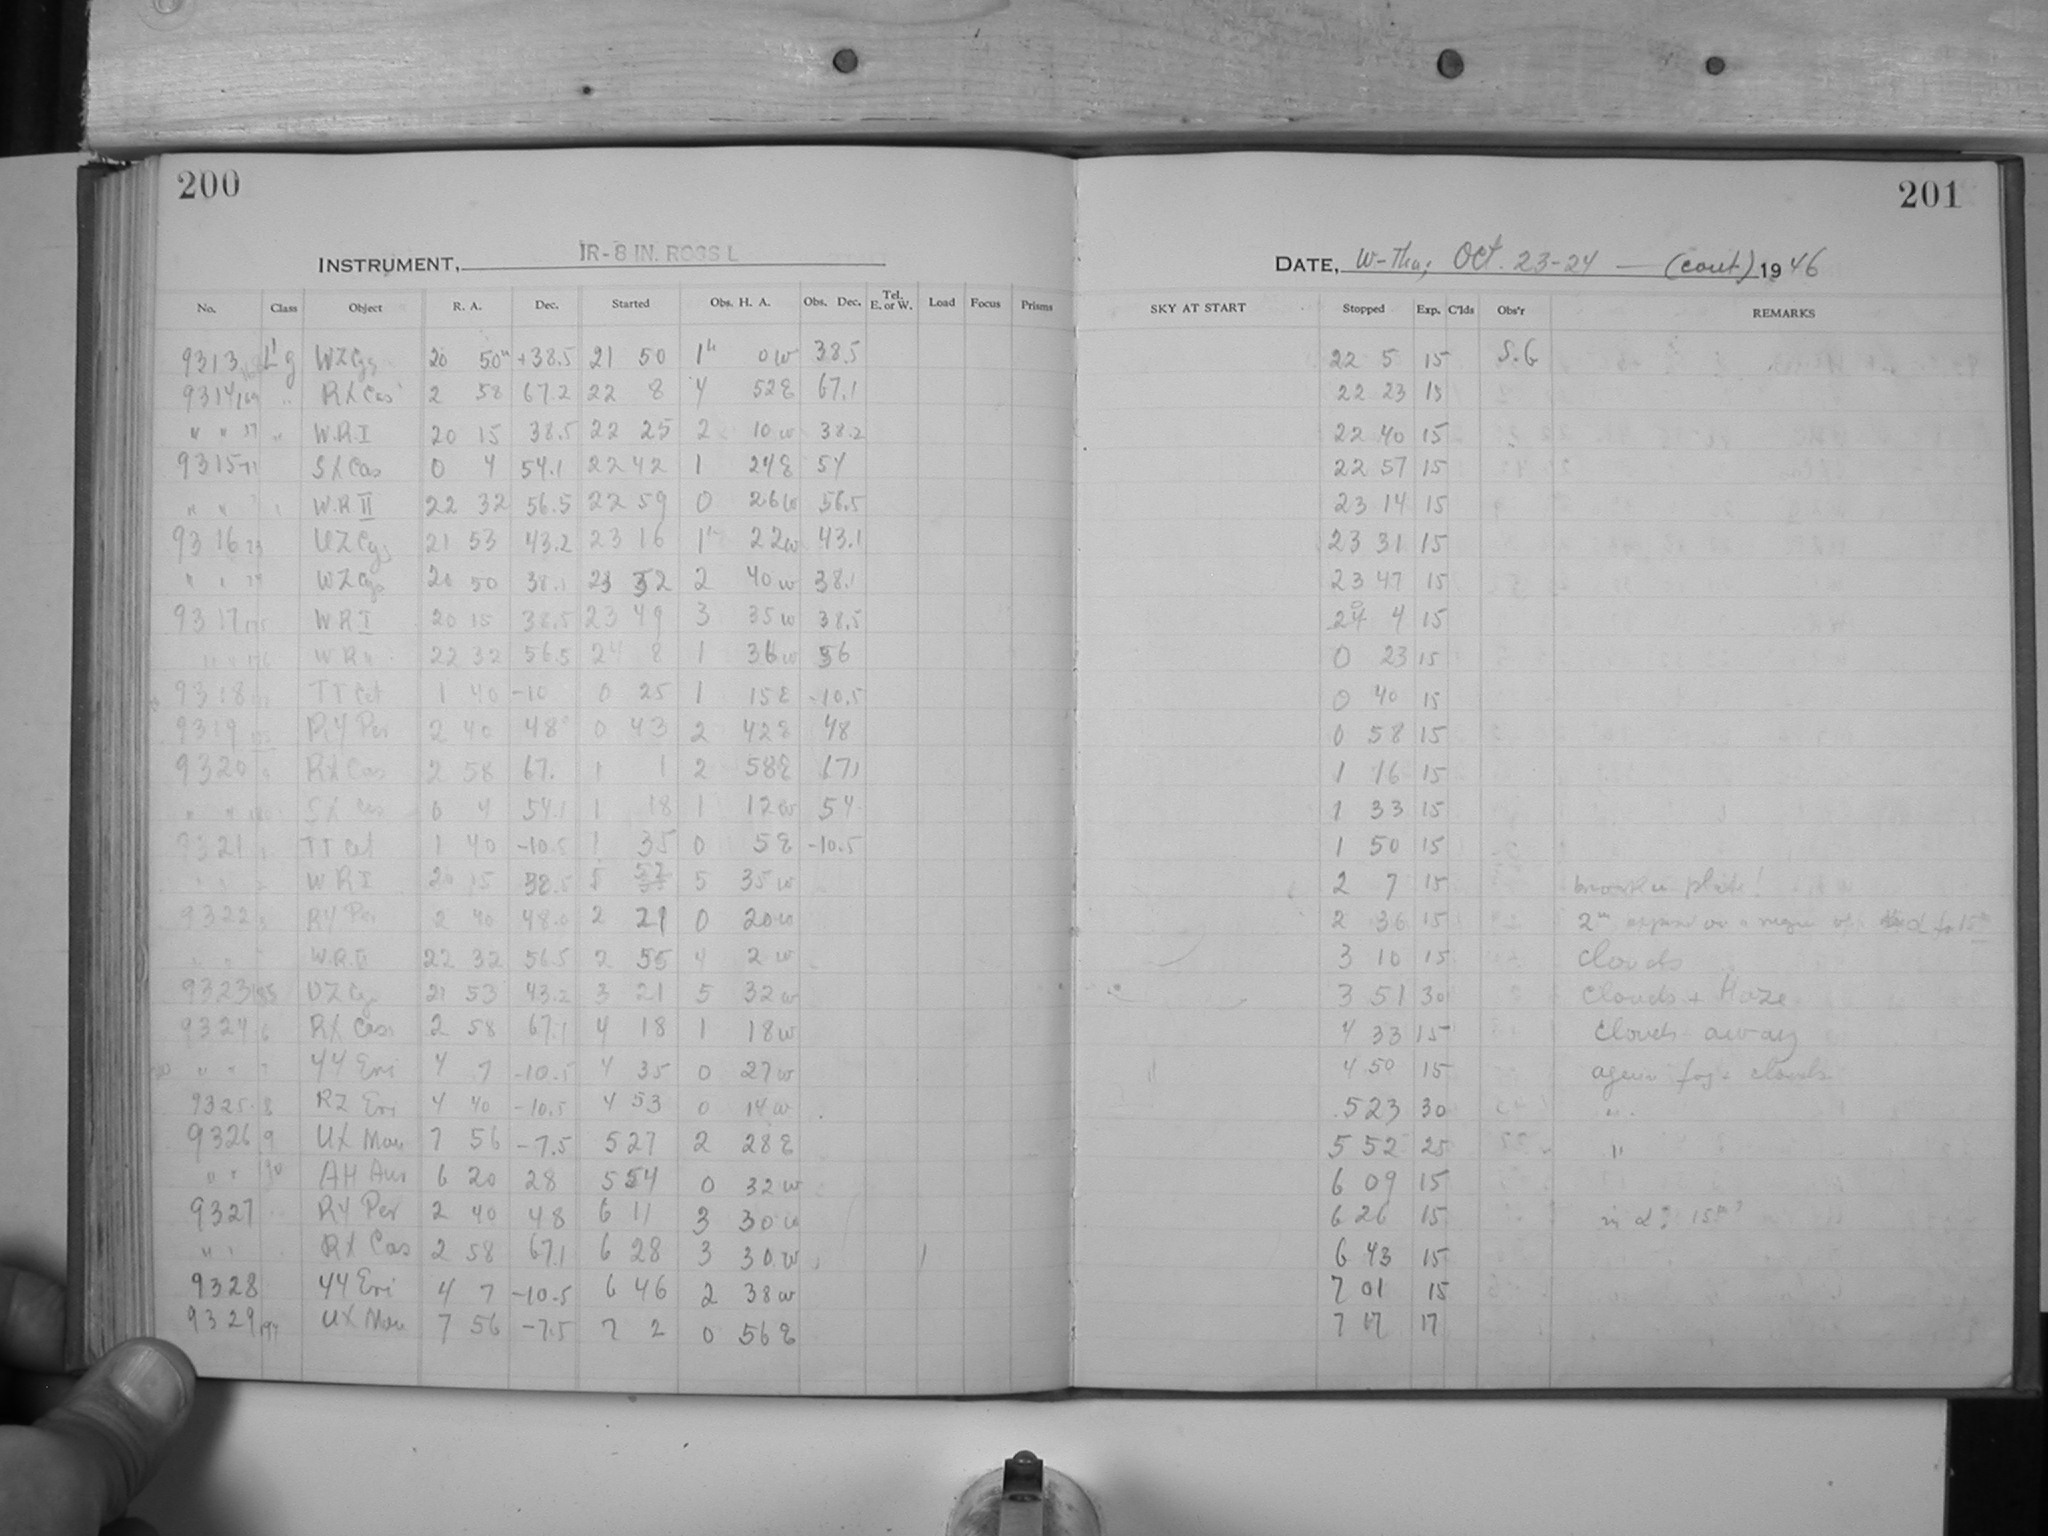 200
INSTRUMENT, IR-8 IN. ROSS L
No. Class Object R. A. Dec. Started Obs. H. A. Obs. Dec. Tel. E. or W. Load Focus Prisms
9313 L g WZ Cyg 20 50m +38.5 21 50 1h 0w 38.5
9314 169 " RX Cas 2 58 67.2 22 8 4 52E 67.1
" " " W.R.I 20 15 38.5 22 25 2 10w 38.2
9315 71 SX Cas 0 4 54.1 22 42 1 24E 54
" " W.R II 22 32 56.5 22 59 0 26w 56.5
9316 73 UZ Cyg 21 53 43.2 23 16 1h 22w 43.1
" " 74 WZ Cyg 20 50 38.1 23 32 2 40w 38.1
9317 175 WR I 20 15 38.5 23 49 3 35w 38.5
" " 176 WR II 22 32 56.5 24 8 1 36w 56
9318 TT Cet 1 40 -10 0 25 1 15E -10.5
9319 RY Per 2 40 48° 0 43 2 42E 48
9320 RX Cas 2 58 67. 1 1 2 58E 671
" " 180 SX Cas 0 4 54.1 1 18 1 12w 54
9321 TT Cet 1 40 -10.5 1 35 0 5E -10.5
" " WR I 20 15 38.5 5 5 35w
9322 RY Per 2 40 48.0 2 21 0 20w
" " W.R.II 22 32 56.5 2 55 4 2w
9323 185 UZ Cyg 21 53 43.2 3 21 5 32w
9324 6 RX Cas 2 58 67.1 4 18 1 18w
" " 7 YY Eri 4 7 -10.5 4 35 0 27w
9325 8 RZ Eri 4 40 -10.5 4 53 0 14w
9326 9 UX Mon 7 56 -7.5 5 27 2 28E
" " 190 AH Aur 6 20 28 5 54 0 32w
9327 RY Per 2 40 48 6 11 3 30w
" " RX Cas 2 58 67.1 6 28 3 30w
9328 YY Eri 4 7 -10.5 6 46 2 38w
9329 194 UX Mon 7 56 -7.5 7 2 0 56E
201
DATE, W-Thu; Oct. 23-24 — (cont) 1946
SKY AT START Stopped Exp. C'lds Obs'r REMARKS
22 5 15 S.G
22 23 15
22 40 15
22 57 15
23 14 15
23 31 15
23 47 15
24 4 15
0 23 15
0 40 15
0 58 15
1 16 15
1 33 15
1 50 15
2 7 15 plate!
2 36 15 2m
3 10 15 Clouds
3 51 30 Clouds + Haze
4 33 15 Clouds away
4 50 15 again fog + clouds
5 23 30 "
5 52 25 "
6 09 15
6 26 15 in α: 15m?
6 43 15
7 01 15
7 17 17